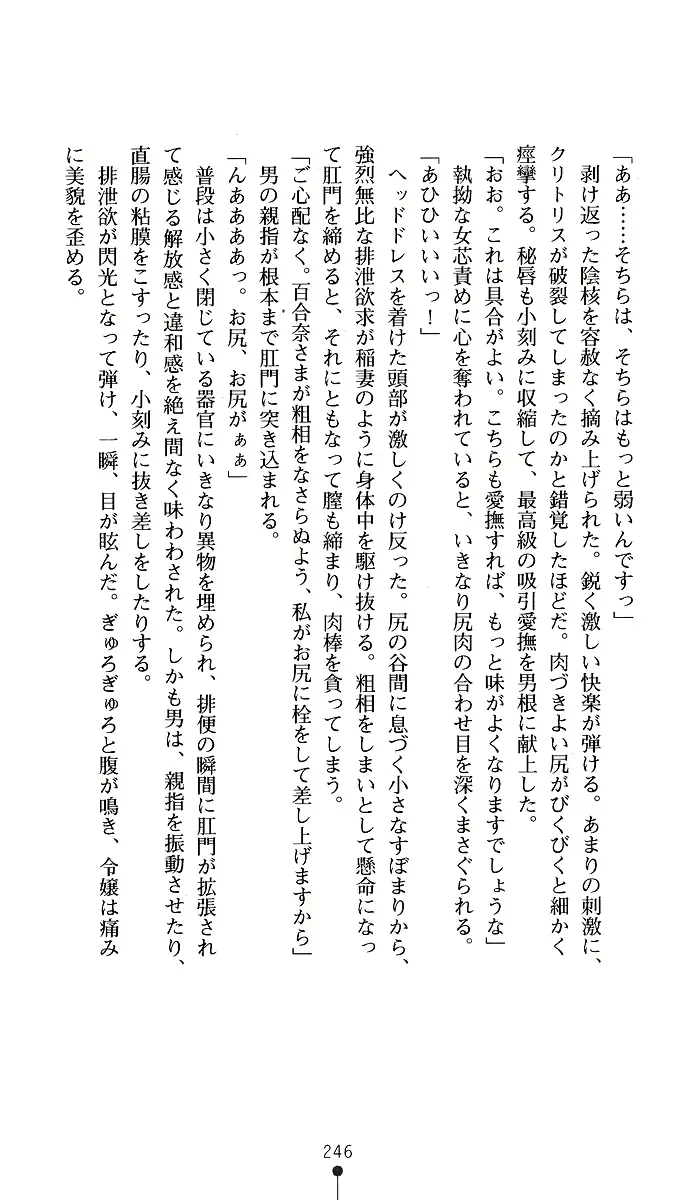 「ああ……そちらは、そちらはもっと弱いんですっ」
剥け返った陰核を容赦なく摘み上げられた。鋭く激しい快楽が弾ける。あまりの刺激に、
クリトリスが破裂してしまったのかと錯覚したほどだ。肉づきよい尻がびくびくと細かく
痙攣する。秘唇も小刻みに収縮して、最高級の吸引愛撫を男根に献上した。
「おお。これは具合がよい。こちらも愛撫すれば、もっと味がよくなりますでしょうな」
執拗な女芯責めに心を奪われていると、いきなり尻肉の合わせ目を深くまさぐられる。
「あひひいいいっ！」
ヘッドドレスを着けた頭部が激しくのけ反った。尻の谷間に息づく小さなすぼまりから、
強烈無比な排泄欲求が稲妻のように身体中を駆け抜ける。粗相をしまいとして懸命になっ
て肛門を締めると、それにともなって膣も締まり、肉棒を貪ってしまう。
「ご心配なく。百合奈さまが粗相をなさらぬよう、私がお尻に栓をして差し上げますから」
男の親指が根本まで肛門に突き込まれる。
「んああああっ。お尻、お尻がぁぁ」
普段は小さく閉じている器官にいきなり異物を埋められ、排便の瞬間に肛門が拡張され
て感じる解放感と違和感を絶え間なく味わわされた。しかも男は、親指を振動させたり、
直腸の粘膜をこすったり、小刻みに抜き差しをしたりする。
排泄欲が閃光となって弾け、一瞬、目が眩んだ。ぎゅろぎゅろと腹が鳴き、令嬢は痛み
に美貌を歪める。
246